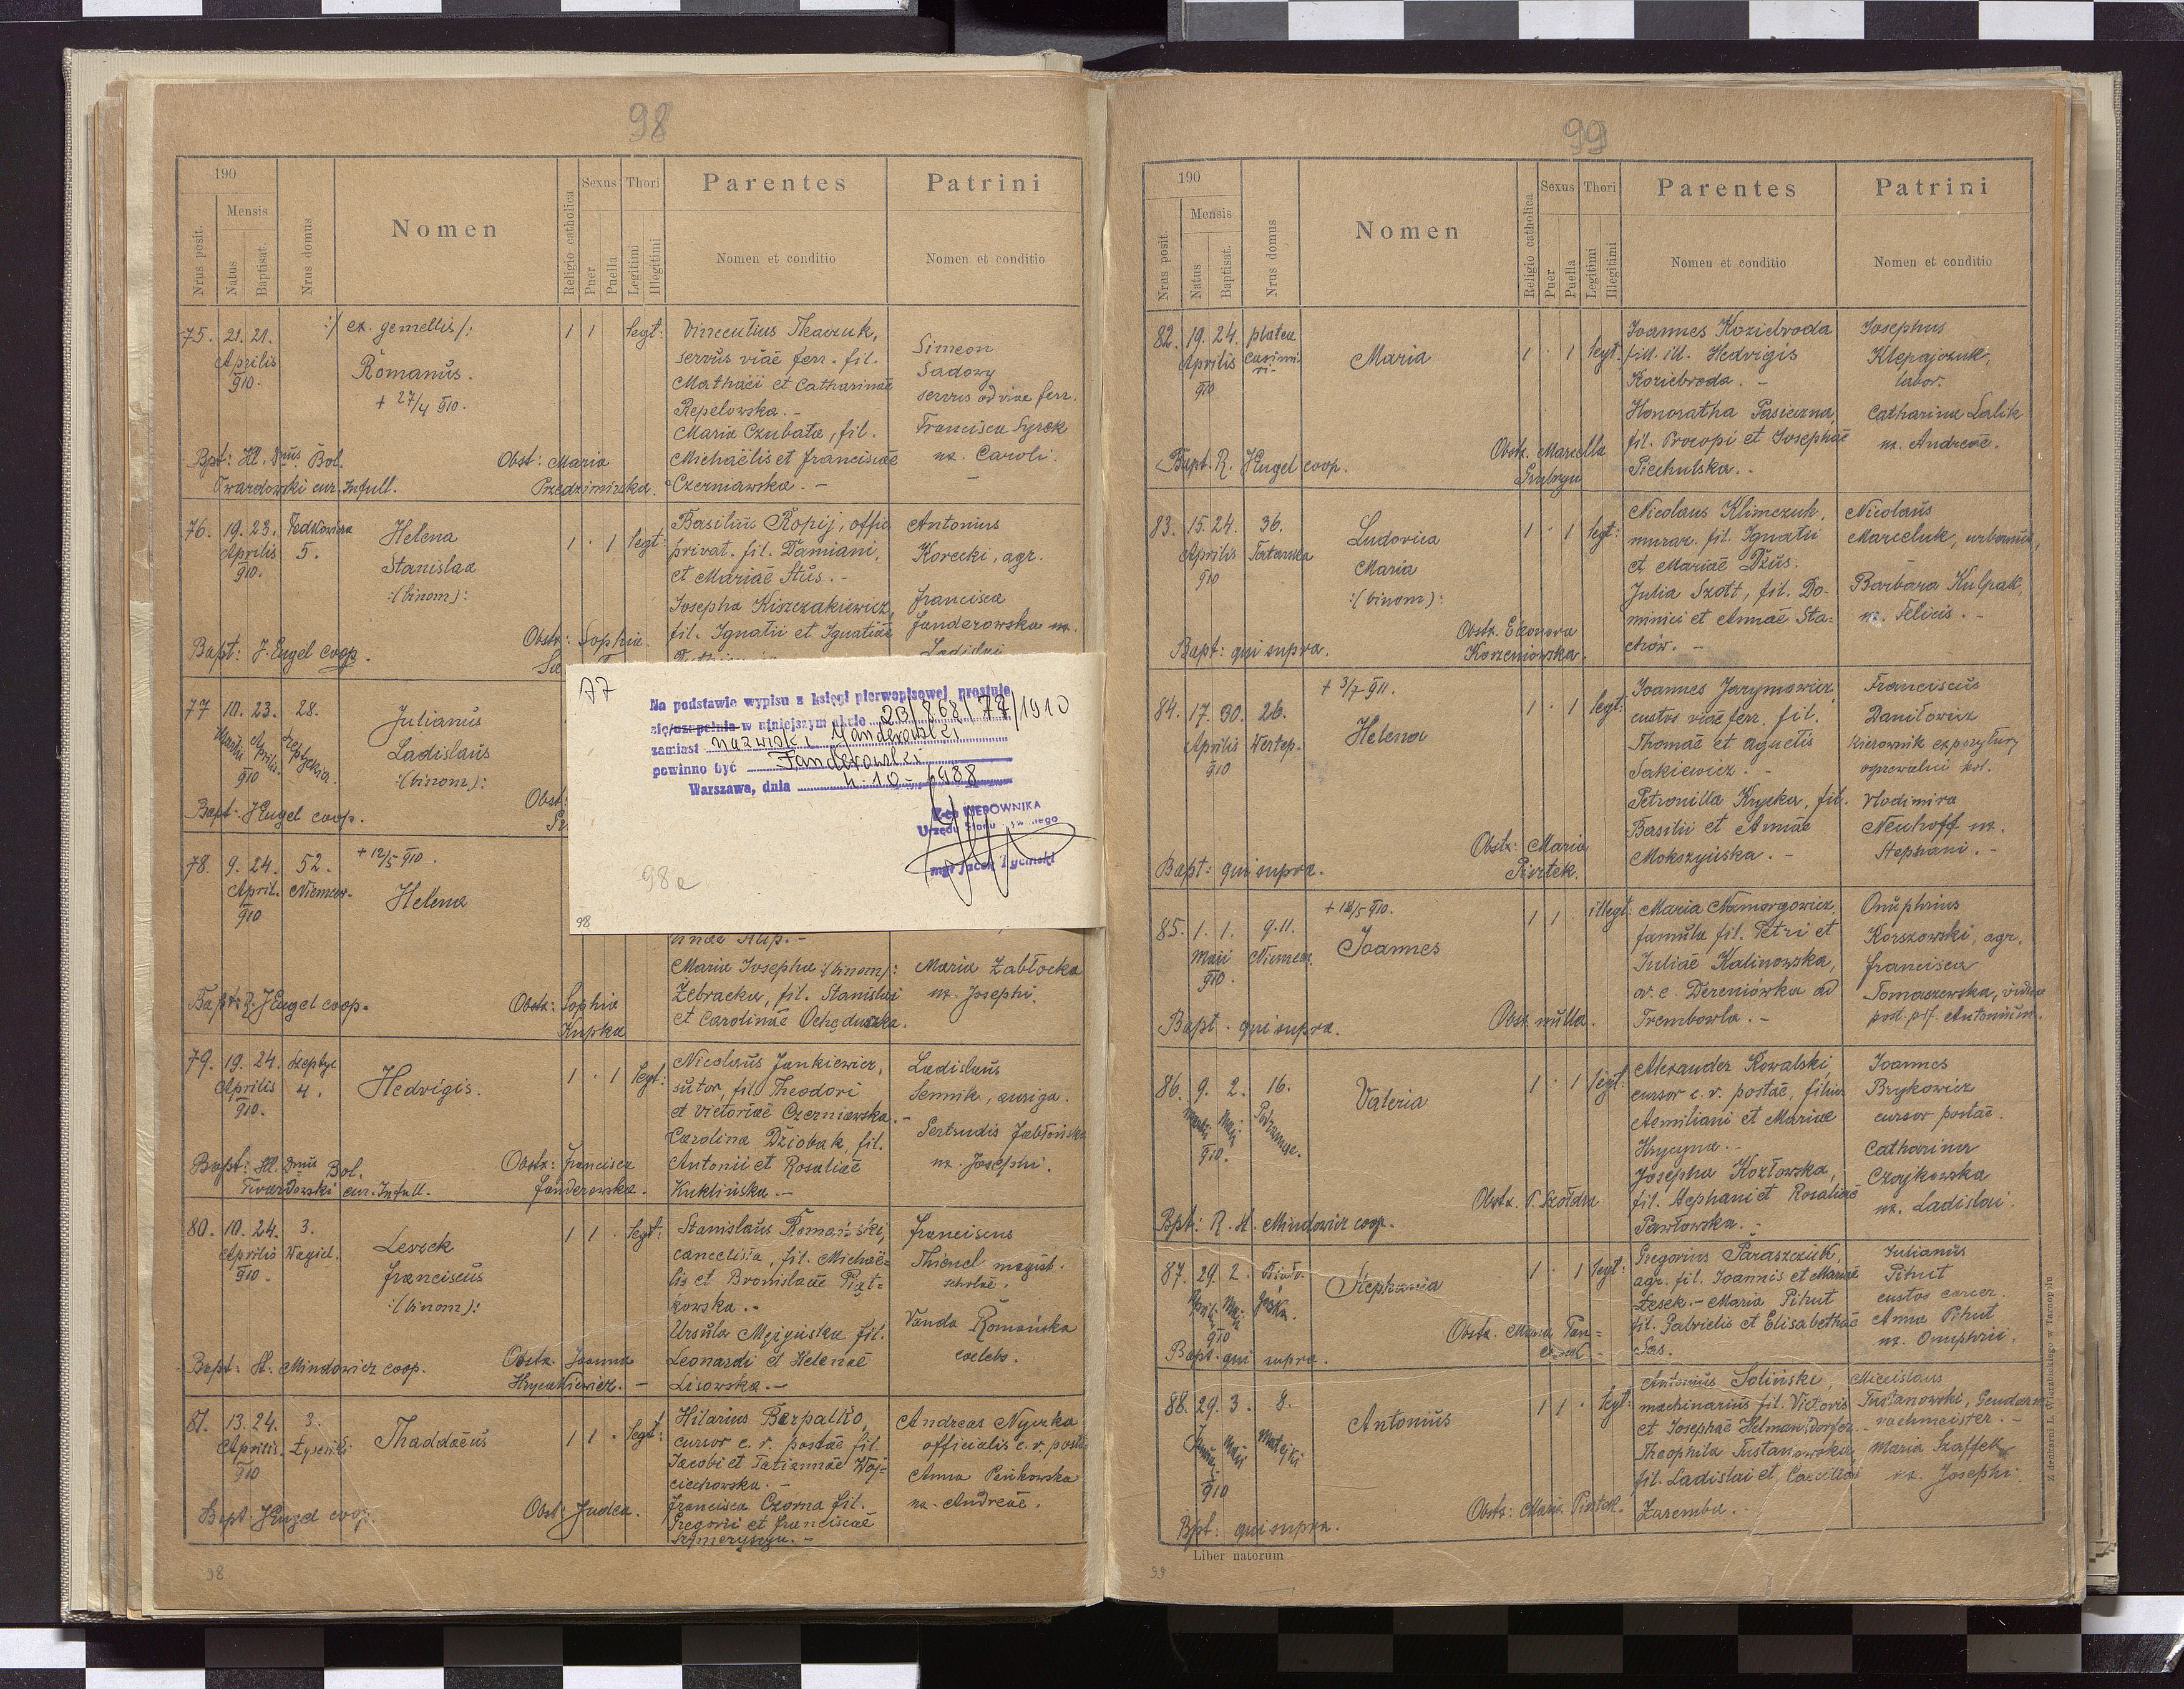 98
190
Mensis
Nrus posit.
Natus
Baptisat.
Nrus domus
Nomen
Religio catholica
Sexus
Puer
Puella
Thori
Legitimi
Illegitimi
Parentes
Nomen et conditio
Patrini
Nomen et conditio
75. 21. 21.
Aprilis
910.
:/ ex gemellis /:
Romanus.
+ 27/4 910.
1 1 legt:
Vincentius Tkaczuk,
servus viae ferr. fil.
Mathaei et Catharinae
Repelowska. -
Maria Czubata, fil.
Michaëlis et Franciscae
Czerniawska. -
Simeon
Sadowy
servus ad viae ferr.
Francisca Syrek
ux. Caroli.
Bpt: Bol.
Twardowski cur. Infull.
Obst: Maria
76. 19. 23.
Aprilis 5.
910.
Helena
Stanislaa
:(binom):
1 · 1 legt:
Basilius Kopij, offic.
privat. fil. Damiani,
et Mariae Stus. -
Josepha Kiszczakiewicz,
fil. Ignatii et Ignatiae
Antonius
Korecki, agr.
Francisca
Janderowska ux.
Ladislai
Bapt: J. Engel coop.
Obst: Sophia
77 10. 23. 28.
Martii Aprilis
910
Julianus
Ladislaus
:(binom):
Bapt: J Engel coop.
Obst:
77
Na podstawie wypisu z księgi pierwopisowej prostuje
się/uzupełnia w niniejszym akcie 20/868/77/1910
zamiast nazwiski Yanderowski
powinno być Fanderowski
Warszawa, dnia 4.10.1988
Z-ca KIEROWNIKA
98a
98
78. 9. 24. 52.
April. Niemcew.
910
+ 12/5 910.
Helena
Maria Josepha :(binom):
Zebracka, fil. Stanislai
et Carolinae
Maria Zabłocka
ux. Josephi.
Bapt: R. J Engel coop.
Obst: Sophia
Kupska
79. 19. 24. Szeptyc
Aprilis 4.
910.
Hedvigis.
1 · 1 legt:
Nicolaus Jankiewicz,
sutor, fil. Theodori
et Victoriae Czerniawska. -
Carolina Dziobak, fil.
Antonii et Rosaliae
Kuklińska. -
Ladislaus
Sennik, auriga.
Gertrudis Jabłońska
ux. Josephi.
Bapt: Bol.
Twardowski cur. Infull.
Obst: Francisca
Janderowska.
80. 10. 24. 3.
Aprilis Wagiel.
910.
Leszek
Franciscus
:(binom):
1 1 · legt:
Stanislaus Romański,
cancelista, fil. Michaë-
lis et Bronislaae Piąt-
kowska. -
Ursula fil.
Leonardi et Helenae
Lisowska. -
Franciscus
Thienel magist.
scholae.
Vanda Romańska
coelebs.
Bapt: H. Mindowicz coop.
Obst. Joanna
Hrycukiewicz. -
81. 13. 24. 3.
Aprilis.
910
Thaddaeus
1 1 · legt:
Hilarius Barpalko,
cursor c. r. postae fil.
Jacobi et Tatiannae Woj-
ciechowska. -
Francisca Czorna fil.
Gregorii et Franciscae
Andreas Nyczka
officialis c. r. post.
Anna Pańkowska
ux. Andreae.
Bapt: J Engel coop.
Obst: Judea.
98
99
190
Mensis
Nrus posit.
Natus
Baptisat.
Nrus domus
Nomen
Religio catholica
Sexus
Puer
Puella
Thori
Legitimi
Illegitimi
Parentes
Nomen et conditio
Patrini
Nomen et conditio
82. 19. 24. platea
Aprilis Casimi-
910 ri-
Maria
1 · 1 legt:
Joannes Koziebroda
fil. ill. Hedvigis
Koziebroda. -
Honoratha Pasieczna,
fil. Procopi et Josephae
Piechulska. -
Josephus
Klepajczuk,
labor.
Catharina Lalik
ux. Andreae.
Bapt. R. J Engel coop.
Obst. Marcella
83. 15. 24. 36.
Aprilis Tatarska
910
Ludovica
Maria
:(binom):
1 · 1 legt:
Nicolaus Klimczuk,
murar. fil. Ignatii
et Mariae Dżus.
Julia Szott, fil. Do-
minici et Annae Sta-
chów. -
Nicolaus
Marceluk, urbanus,
Barbara Kulpak,
ux. Felicis. -
Bapt: qui supra.
Obstr. Eleonora
Korzeniowska.
84. 17. 30. 26.
Aprilis Wertep.
910
+ 3/7 911.
Helena
1 · 1 legt:
Joannes Jarymowicz
custos viae ferr. fil.
Thomae et Agnetis
Sakiewicz. -
Petronilla Krycka, fil.
Basilii et Annae
Mokszyńska. -
Franciscus
Daniłowicz
kierownik ekspozytury
ogrzewalni kol.
Vlodimira
Neuhoff ux.
Stephani. -
Bapt: qui supra.
Obstr: Maria
Piwtek.
85. 1. 1. 9.11.
Maii Niemcew.
910.
+ 12/5 910.
Joannes
1 1 · illegt:
Maria Namorgowicz,
famula fil. Petri et
Juliae Kalinowska,
or. e Dereniówka ad
Trembowla. -
Onuphrius
Korszowski, agr.
Francisca
Tomaszewska, vidua
post. pif. Antonium.
Bapt. qui supra.
Obst. nulla.
86. 9. 2. 16.
Martii Maii
910.
Valeria
1 · 1 legt:
Alexander Kowalski,
cursor c. r. postae, filius
Aemiliani et Mariae
Hrycyna. -
Josepha Kozłowska,
fil. Stephani et Rosaliae
Pawłowska. -
Joannes
Brykowicz
cursor postae.
Catharina
Czajkowska
ux. Ladislai.
Bpt: R. H. Mindowicz coop.
87. 29. 2.
Aprilis Maii
910
Stephania
1 · 1 legt:
Gregorius Paraszczuk,
agr. fil. Joannis et Mariae
Lesek. - Maria Pihut
fil. Gabrielis et Elisabethae
Sas.
Julianus
Pihut
custos carcer.
Anna Pihut
ux. Onuphrii.
Bapt. qui supra.
Obstr. Maria
88. 29. 3. 8.
Maii Matejki
910
Antonius
1 1 · legt:
Antonius Soliński,
machinarius fil. Victoris
et Josephae Helmansdorfer. -
Theophila Tustanowska,
fil. Ladislai et Caeciliae
Zaremba. -
Miecislaus
Tustanowski, Gendarm.
wachmeister. -
Maria Szaffek
ux. Josephi.
Bpt: qui supra.
Obstr: Maria Piwtek.
Liber natorum
99
Z drukarni L. Wierzbickiego w Tarnopolu